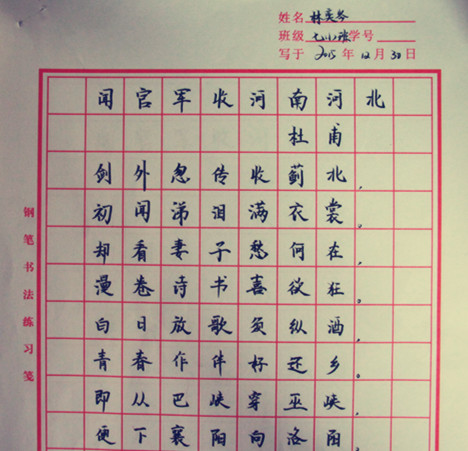 姓名 林
班级 七(1)班 学号
写于 2015 年 12 月 30 日
闻官军收河南河北
杜甫
剑外忽传收蓟北，
初闻涕泪满衣裳。
却看妻子愁何在，
漫卷诗书喜欲狂。
白日放歌须纵酒，
青春作伴好还乡。
即从巴峡穿巫峡，
便下襄阳向洛阳。
钢笔书法练习笺